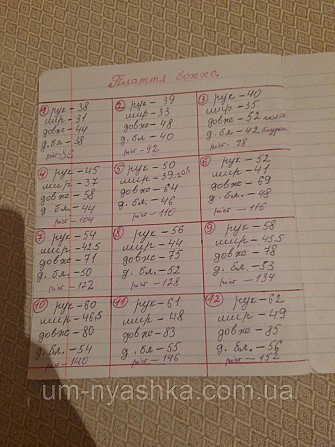 Плаття вожо.
① рук – 38
шир – 31
довж – 44
д. бл – 38
ріст –
② рук – 39
шир – 33
довж – 48
д. бл – 40
ріст – 92
③ рук – 40
шир – 35
довж – 52
д. бл – 42
ріст – 98
④ рук – 45
шир – 37
довж – 58
д. бл – 44
ріст – 104
⑤ рук – 50
шир – 39
довж – 64
д. бл – 46
ріст – 110
⑥ рук – 52
шир – 41
довж – 69
д. бл – 48
ріст – 116
⑦ рук – 54
шир – 42.5
довж – 71
д. бл – 50
ріст – 122
⑧ рук – 56
шир – 44
довж – 75
д. бл. – 52
ріст – 128
⑨ рук – 58
шир – 45.5
довж – 78
д. бл. – 53
ріст – 134
⑩ рук – 60
шир – 46,5
довж – 80
д. бл. – 54
ріст – 140
⑪ рук – 61
шир – 48
довж – 83
д. бл – 55
ріст – 146
⑫ рук – 62
шир – 49
довж – 85
д. бл. – 56
ріст – 152
um-nyashka.com.ua